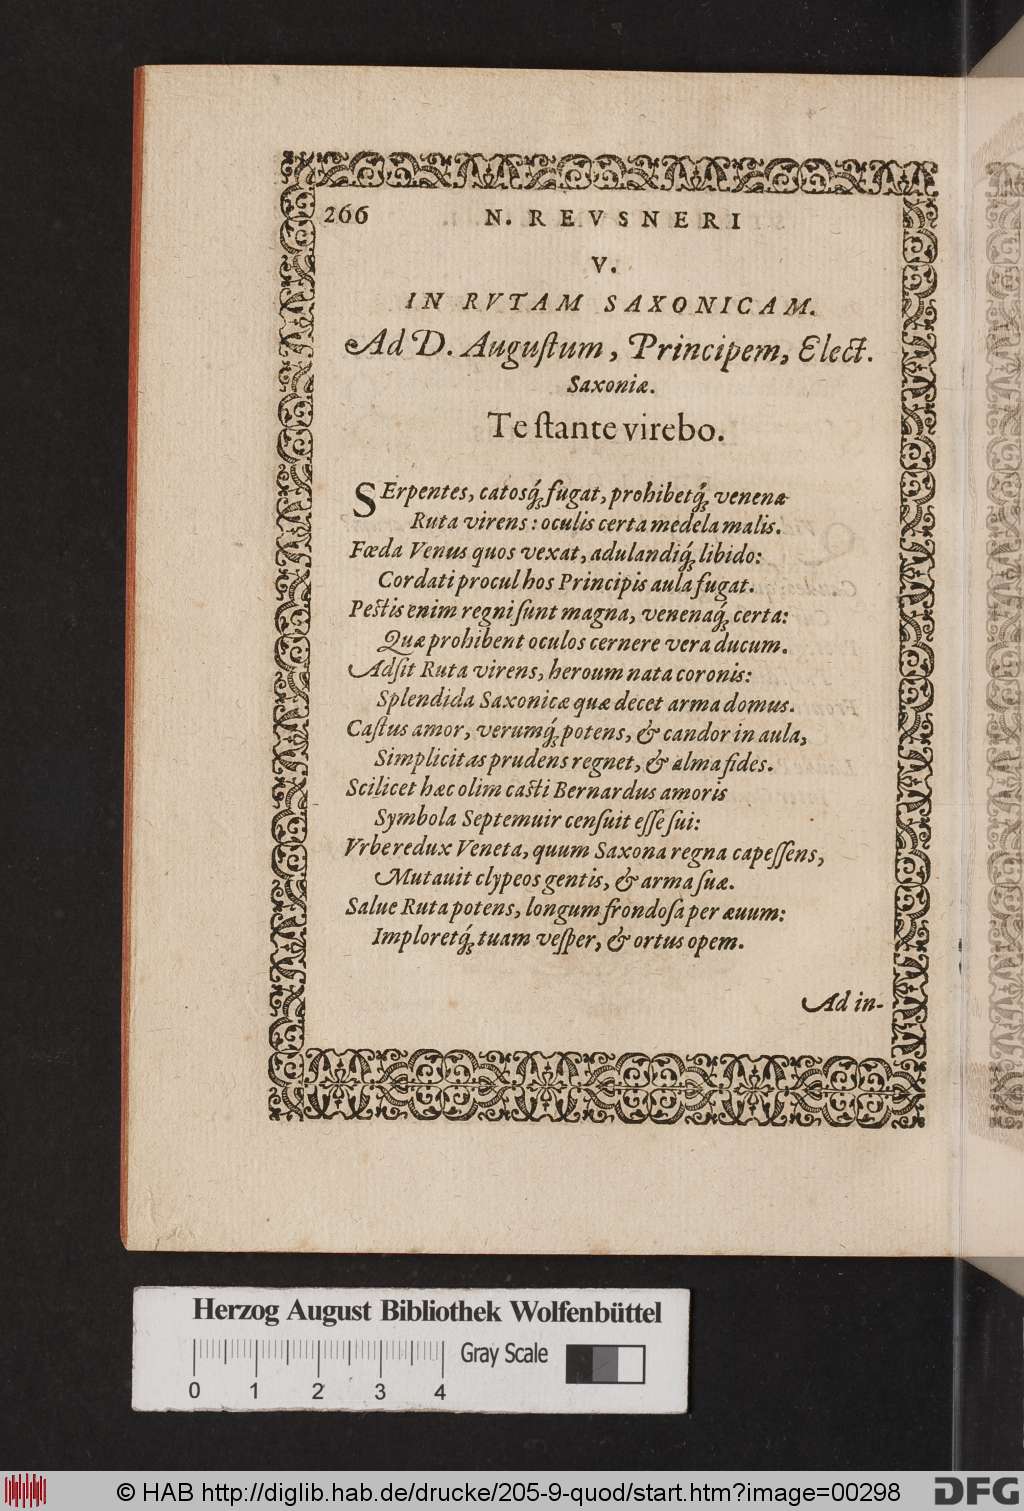 266 N. REVSNERI
V.
IN RVTAM SAXONICAM.
Ad D. Auguſtum, Principem, Elect.
Saxoniæ.
Te ſtante virebo.
SErpentes, catosq́; fugat, prohibetq́; venena
Ruta virens: oculis certa medela malis.
Fœda Venus quos vexat, adulandiq́; libido:
Cordati procul hos Principis aula fugat.
Peſtis enim regni ſunt magna, venenaq́; certa:
Quæ prohibent oculos cernere vera ducum.
Adſit Ruta virens, heroum nata coronis:
Splendida Saxonicæ quæ decet arma domus.
Caſtus amor, verumq́; potens, & candor in aula,
Simplicitas prudens regnet, & alma fides.
Scilicet hæc olim caſti Bernardus amoris
Symbola Septemuir cenſuit eſſe ſui:
Vrbe redux Veneta, quum Saxona regna capeſſens,
Mutauit clypeos gentis, & arma ſuæ.
Salue Ruta potens, longum frondoſa per æuum:
Imploretq́; tuam veſper, & ortus opem.
Ad in-
Herzog August Bibliothek Wolfenbüttel
Gray Scale
0 1 2 3 4
© HAB http://diglib.hab.de/drucke/205-9-quod/start.htm?image=00298
DFG